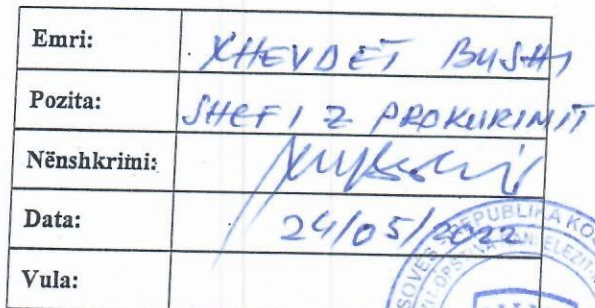 Emri: XHEVDET BUSHI
Pozita: SHEFI I Z PROKURIMIT
Nënshkrimi:
Data: 24/05/2022
Vula:
REPUBLIKA KOS